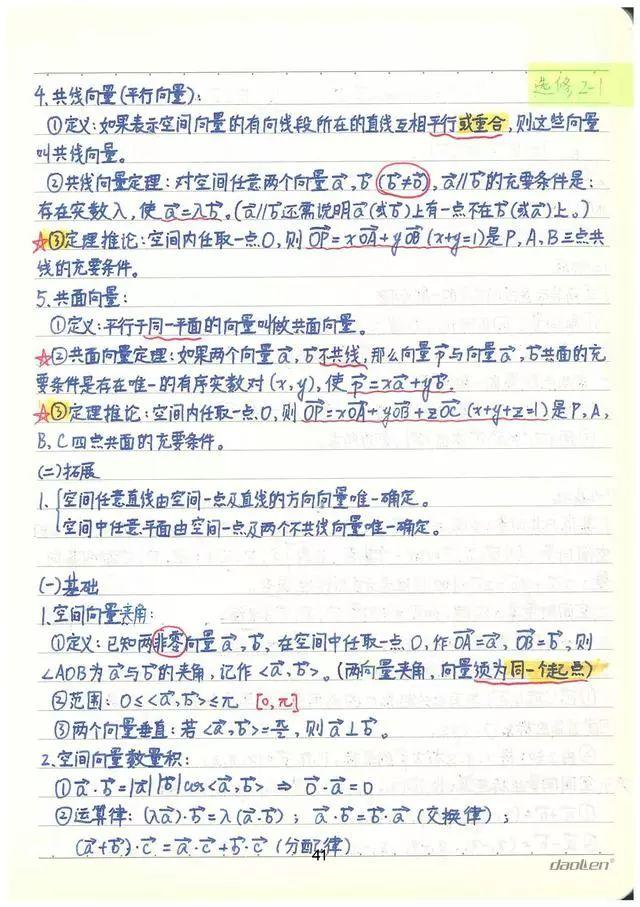 选修 2-1
4.共线向量(平行向量):
①定义:如果表示空间向量的有向线段所在的直线互相平行或重合,则这些向量
叫共线向量。
②共线向量定理:对空间任意两个向量a⃗,b⃗(b⃗≠0⃗),a⃗∥b⃗的充要条件是:
存在实数λ,使a⃗=λb⃗。(a⃗∥b⃗还需说明a⃗(或b⃗)上有一点不在b⃗(或a⃗)上。)
☆③定理推论:空间内任取一点O,则OP⃗=xOA⃗+yOB⃗(x+y=1)是P,A,B三点共
线的充要条件。
5.共面向量:
①定义:平行于同一平面的向量叫做共面向量。
☆②共面向量定理:如果两个向量a⃗,b⃗不共线,那么向量p⃗与向量a⃗,b⃗共面的充
要条件是存在唯一的有序实数对(x,y),使p⃗=xa⃗+yb⃗.
☆③定理推论:空间内任取一点O,则OP⃗=xOA⃗+yOB⃗+zOC⃗(x+y+z=1)是P,A,
B,C四点共面的充要条件。
(二)拓展
1.{空间任意直线由空间一点及直线的方向向量唯一确定。
空间中任意平面由空间一点及两个不共线向量唯一确定。
(一)基础
1.空间向量夹角:
①定义:已知两非零向量a⃗,b⃗,在空间中任取一点O,作OA⃗=a⃗,OB⃗=b⃗,则
∠AOB为a⃗与b⃗的夹角,记作<a⃗,b⃗>。(两向量夹角,向量须为同一个起点)
②范围:0≤<a⃗,b⃗>≤π [0,π]
③两个向量垂直:若<a⃗,b⃗>=π/2,则a⃗⊥b⃗。
2.空间向量数量积:
①a⃗·b⃗=|a⃗||b⃗|cos<a⃗,b⃗> ⇒ 0⃗·a⃗=0
②运算律:(λa⃗)·b⃗=λ(a⃗·b⃗); a⃗·b⃗=b⃗·a⃗(交换律);
(a⃗+b⃗)·c⃗=a⃗·c⃗+b⃗·c⃗(分配律)
41
daolen